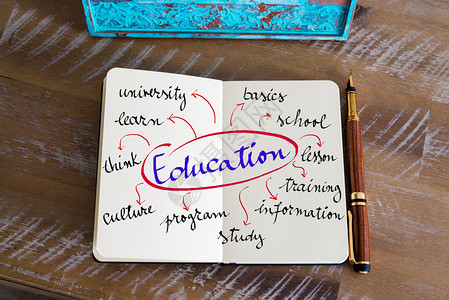 university
basics
learn
school
think
Education
lesson
training
culture
program
information
study